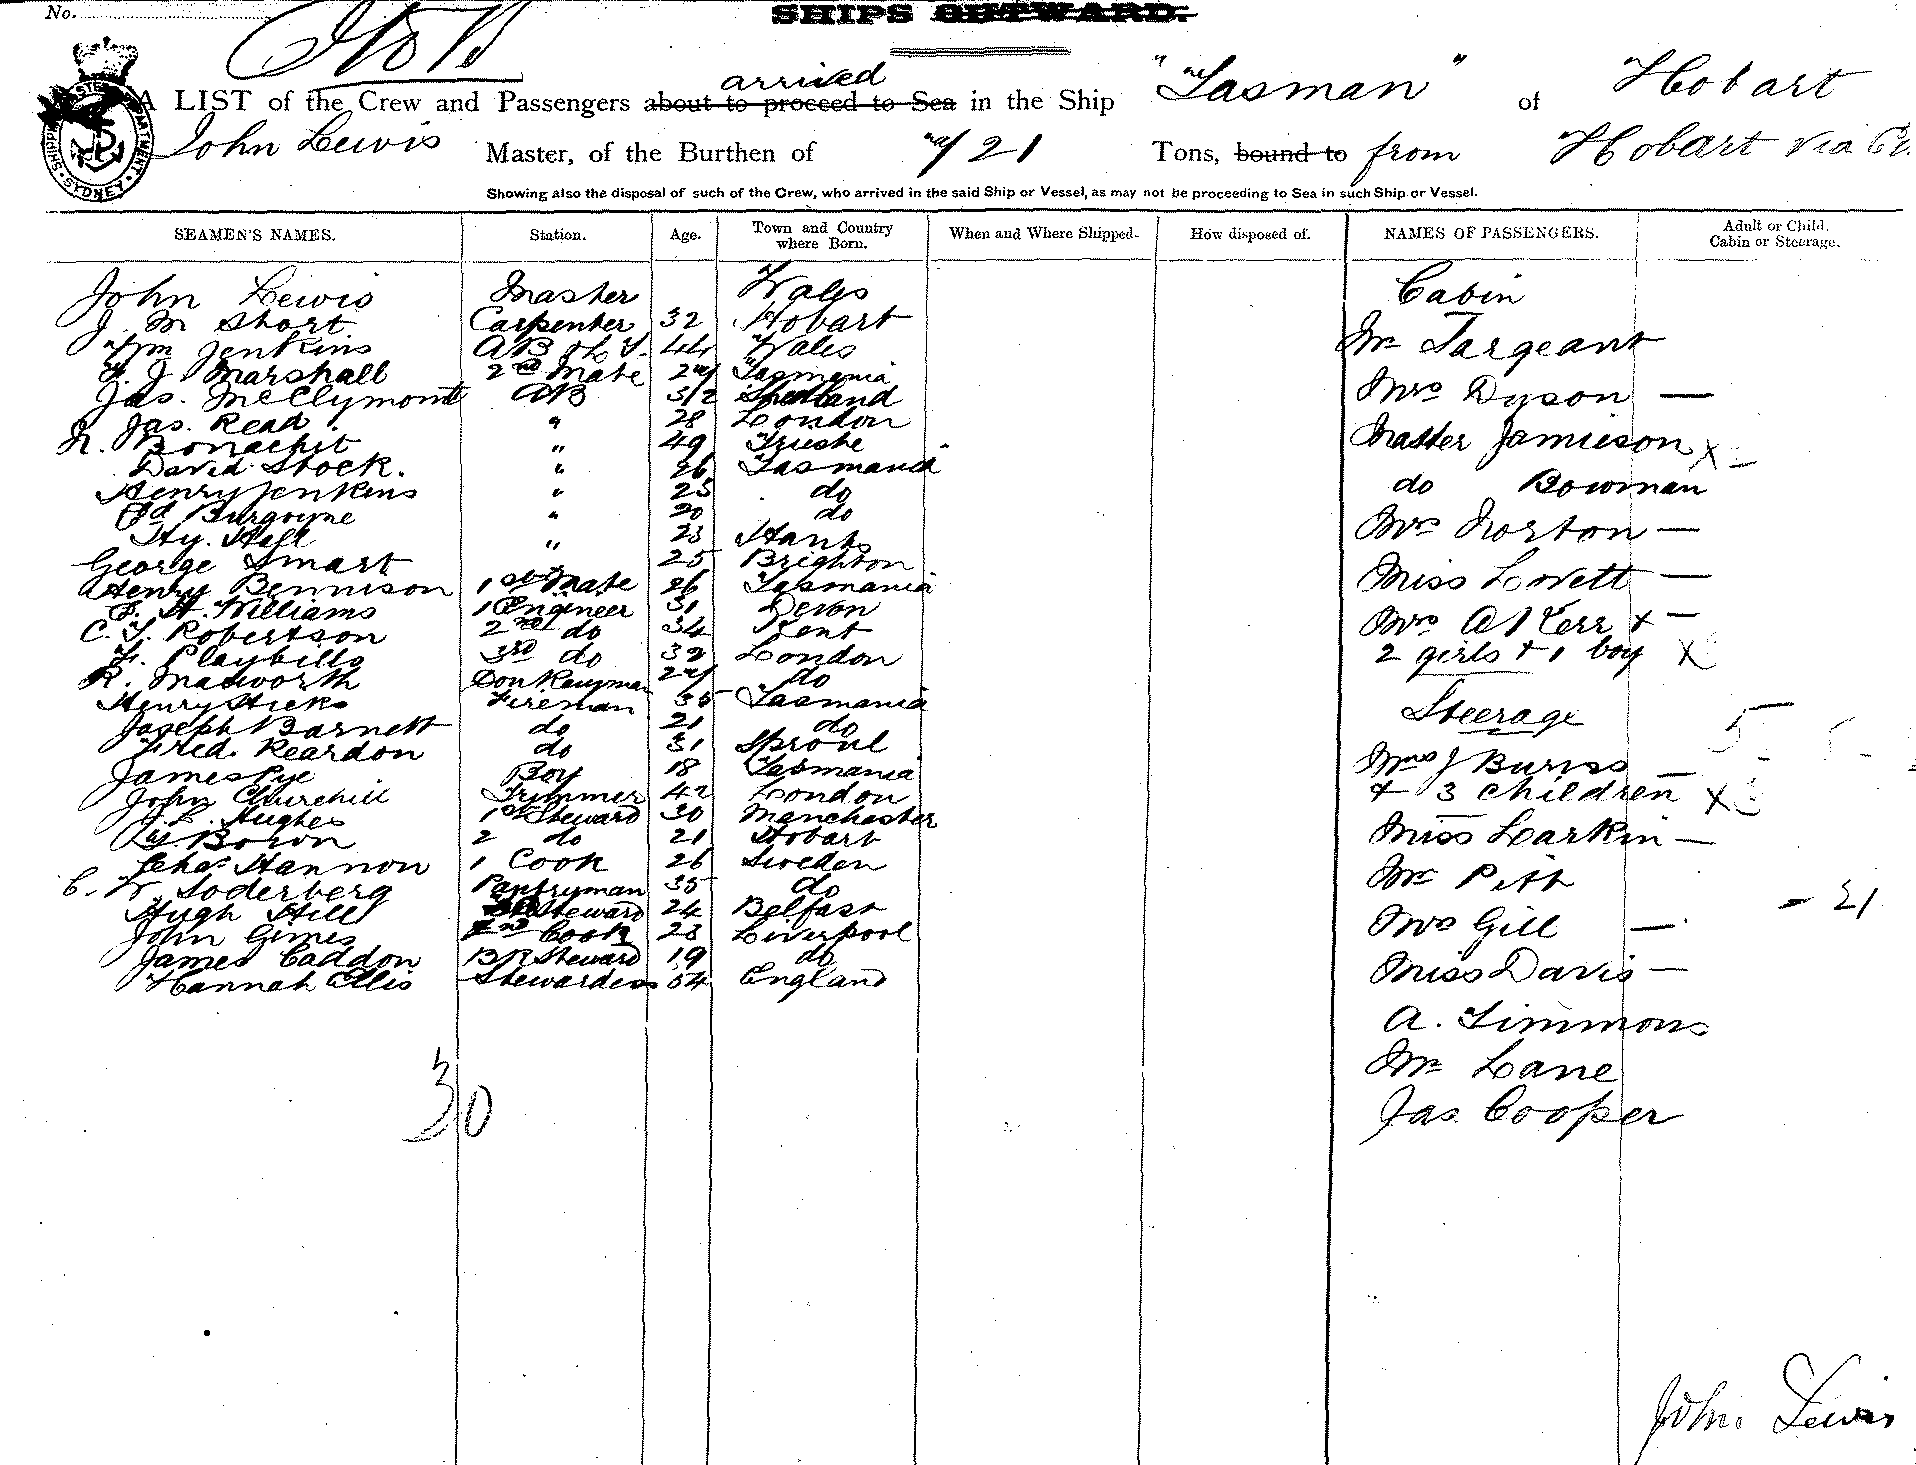 No.
SHIPS OUTWARD.
arrived
A LIST of the Crew and Passengers about to proceed to Sea in the Ship "Tasman" of Hobart
John Lewis Master, of the Burthen of 21 Tons, bound to from Hobart via
Showing also the disposal of such of the Crew, who arrived in the said Ship or Vessel, as may not be proceeding to Sea in such Ship or Vessel.
SEAMEN'S NAMES. Station. Age. Town and Country where Born. When and Where Shipped. How disposed of. NAMES OF PASSENGERS. Adult or Child. Cabin or Steerage.
John Lewis Master Wales
J. M Short Carpenter 32 Hobart
Wm Jenkins AB & L T. 44 Wales
J. Marshall 2nd Mate 27 Tasmania
Jas. McClymont AB 32 Shetland
Jas. Read " 28 London
Bonachit " 49 Trieste
David Stock. " 26 Tasmania
Henry Jenkins " 25 do
Ed Burgoyne " 20 do
Hy. Hall " 23 Hants
George Smart 25 Brighton
Henry Bennison 1st Mate 26 Tasmania
H. Williams 1 Engineer 31 Devon
C. T. Robertson 2nd do 34 Kent
F. Playbills 3rd do 32 London
R. Masworth Donkeyman 27 do
Henry Hicks Fireman 35 Tasmania
Joseph Barnett do 21 do
Fred. Reardon do 31 Sproul
James Pye Boy 18 Tasmania
John Churchill Trimmer 42 London
J. L. Hughes 1st Steward 30 Manchester
Bown 2 do 21 Hobart
Chas Hannon 1 Cook 26 Sweden
C. W. Soderberg Pantryman 35 do
Hugh Hill Steward 24 Belfast
John Gimes 2nd Cook 23 Liverpool
James Caddon BR Steward 19 do
Hannah Ellis Stewardess 54 England
30
Cabin
Mr Targeant
Mrs Dyson —
Master Jamieson x –
do Bowman
Mrs Norton —
Miss Lovett —
Mrs A Kerr + –
2 girls + 1 boy X
Steerage 5
Mrs J Burns –
+ 3 children x 3
Miss Larkin –
Mr Pitt
– 21
Mrs Gill —
Miss Davis –
A. Timmons
Mr Lane
Jas Cooper
John Lewis